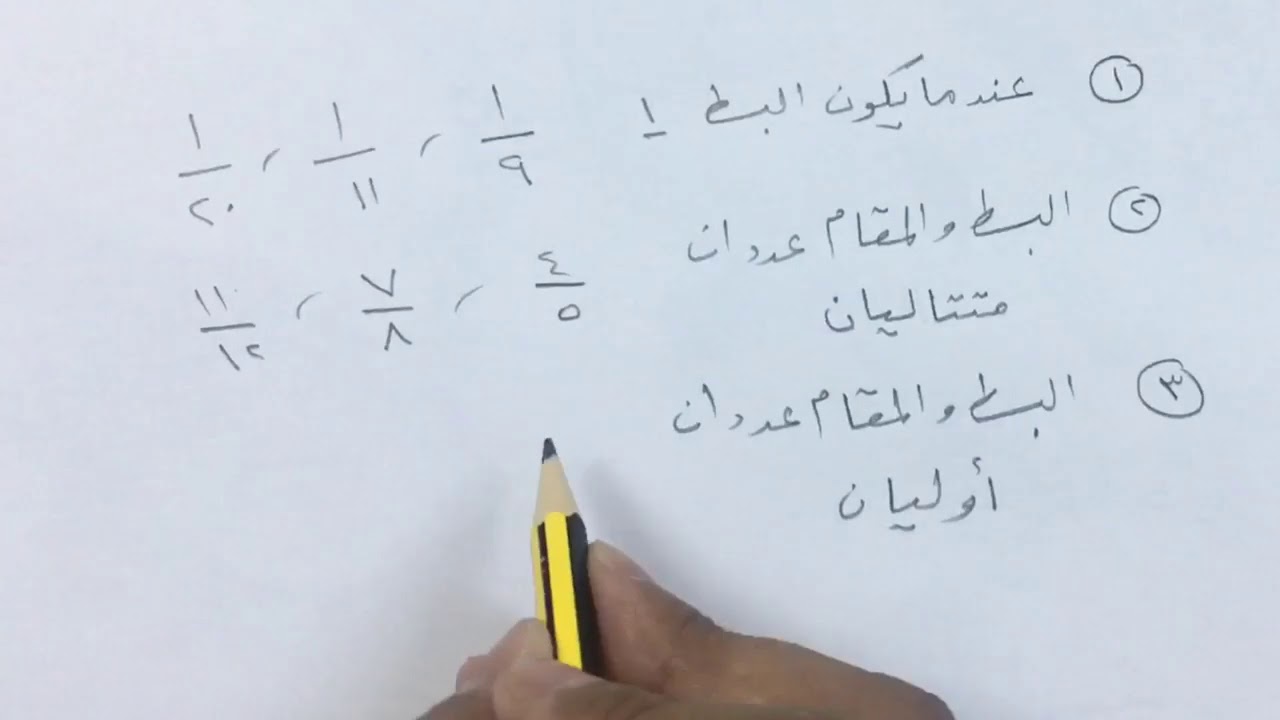 ① عندما يكون البسط ١ ١/٩ ، ١/١١ ، ١/٢٠
② البسط والمقام عددان
متتاليان ٤/٥ ، ٧/٨ ، ١١/١٢
③ البسط والمقام عددان
أوليان